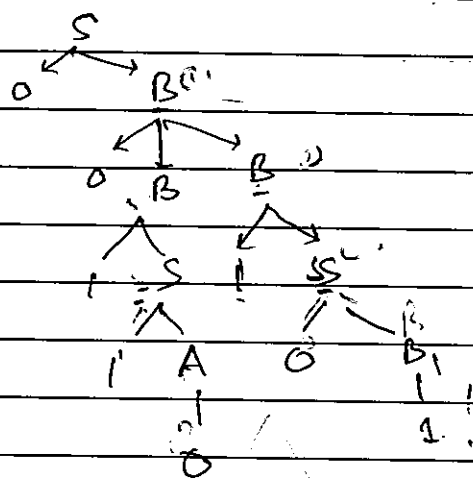 S
0 B
0 B B
1 S 1 S
1 A 0 B
0 1